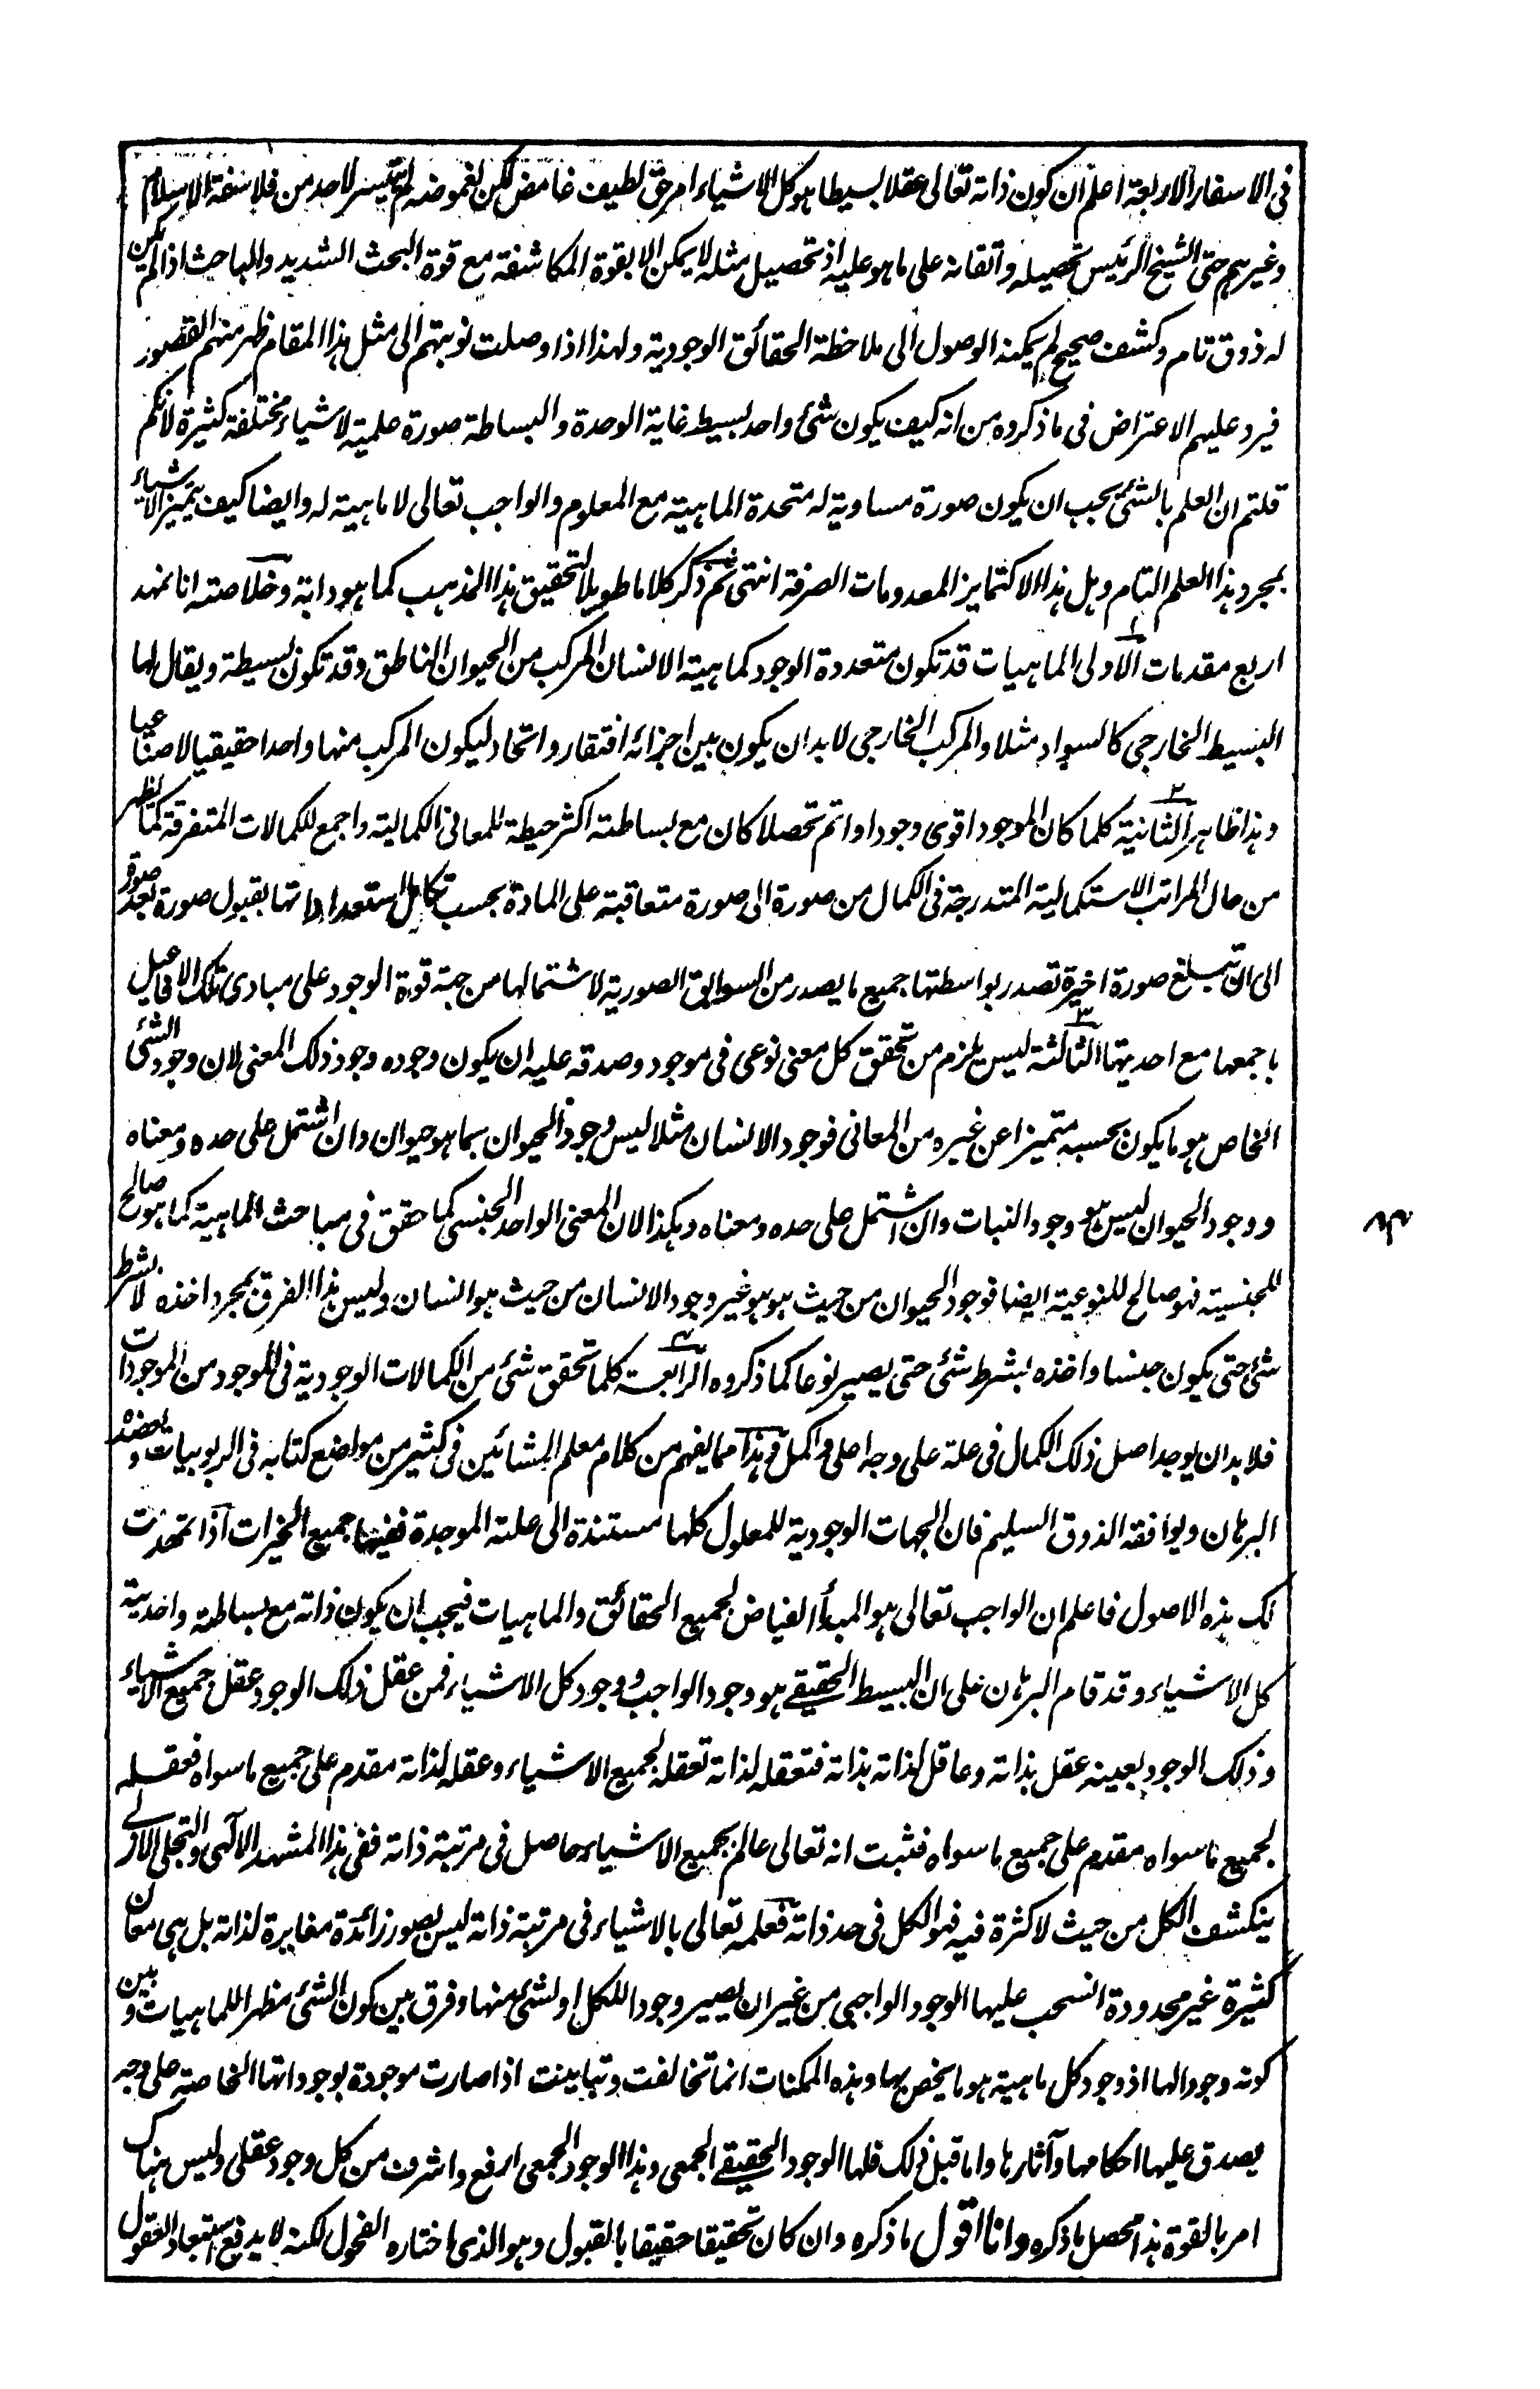 في الاسفار الاربعة اعلم ان كون ذاته تعالى عقلا بسيطا هو كل الاشياء امر حق لطيف غامض لكن لغموضه لم يتيسر لاحد من فلاسفة الاسلام
وغيرهم حتى الشيخ الرئيس تحصيله واتقانه على ما هو عليه اذ تحصيل مثله لا يمكن الا بقوة المكاشفة مع قوة البحث الشديد والباحث اذا لم يكن
له ذوق تام وكشف صحيح لم يمكنه الوصول الى ملاحظة الحقائق الوجودية ولهذا اذا وصلت نوبتهم الى مثل هذا المقام ظهر منهم القصور
فيرد عليهم الاعتراض في ما ذكروه من انه كيف يكون شئ واحد بسيط غاية الوحدة والبساطة صورة علمية لاشياء مختلفة كثيرة لانكم
قلتم ان العلم بالشئ يجب ان يكون صورة مساوية له متحدة الماهية مع المعلوم والواجب تعالى لا ماهية له وايضا كيف يتميز الاشياء
بمجرد هذا العلم التام وهل هذا الا كتمايز المعدومات الصرفة انتهى ثم ذكر كلاما طويلا لتحقيق هذا المذهب كما هو دابه وخلاصته انا نمهد
اربع مقدمات الاولى الماهيات قد تكون متعددة الوجود كماهية الانسان المركب من الحيوان الناطق وقد تكون بسيطة ويقال لها
البسيط الخارجي كالسواد مثلا والمركب الخارجي لا بد ان يكون بين اجزائه افتقار واتحاد ليكون المركب منها واحدا حقيقيا لا صناعيا
وهذا ظاهر الثانية كلما كان الموجود اقوى وجودا واتم تحصلا كان مع بساطته اكثر حيطة للمعاني الكمالية واجمع للكمالات المتفرقة كما يظهر
من حال المراتب الاستكمالية المتدرجة في الكمال من صورة الى صورة متعاقبة على المادة بحسب تكامل استعداداتها بقبول صورة بعد صورة
الى ان تبلغ صورة اخيرة تصدر بواسطتها جميع ما يصدر من السوابق الصورية لاشتمالها من جهة قوة الوجود على مبادى تلك الافاعيل
باجمعها مع احديتها الثالثة ليس يلزم من تحقق كل معنى نوعى في موجود وصدقه عليه ان يكون وجوده وجود ذلك المعنى لان وجود الشئ
الخاص هو ما يكون بحسبه متميزا عن غيره من المعاني فوجود الانسان مثلا ليس وجود الحيوان بما هو حيوان وان اشتمل على حده ومعناه
ووجود الحيوان ليس هو وجود النبات وان اشتمل على حده ومعناه وهكذا لان المعنى الواحد الجنسي كما حقق في مباحث الماهية كما هو صالح
للجنسية فهو صالح للنوعية ايضا فوجود الحيوان من حيث هو هو غير وجود الانسان من حيث هو انسان وليس هذا الفرق بمجرد اخذه لا بشرط
شئ حتى يكون جنسا واخذه بشرط شئ حتى يصير نوعا كما ذكروه الرابعة كلما تحقق شئ من الكمالات الوجودية في الموجود من الموجودات
فلا بد ان يوجد اصل ذلك الكمال في علة على وجه اعلى واكمل وهذا مما يفهم من كلام معلم المشائين في كثير من مواضع كتابه في الربوبيات ويعضده
البرهان ويوافقه الذوق السليم فان الجهات الوجودية للمعلول كلها مستندة الى علته الموجدة ففيها جميع الخيرات اذا تمهدت
لك هذه الاصول فاعلم ان الواجب تعالى هو المبدأ الفياض لجميع الحقائق والماهيات فيجب ان يكون ذاته مع بساطته واحديته
كل الاشياء وقد قام البرهان على ان البسيط الحقيقي هو وجود الواجب ووجود كل الاشياء فمن عقل ذلك الوجود عقل جميع الاشياء
وذلك الوجود بعينه عقل بذاته وعاقل لذاته بذاته فتعقله لذاته تعقله لجميع الاشياء وعقله لذاته مقدم على جميع ما سواه فعقله
لجميع ما سواه مقدم على جميع ما سواه فثبت انه تعالى عالم بجميع الاشياء حاصل في مرتبة ذاته ففي هذا المشهد الالهي والتجلي الازلى
ينكشف الكل من حيث لا كثرة فيه فهو الكل في حد ذاته فعلمه تعالى بالاشياء في مرتبة ذاته ليس بصور زائدة مغايرة لذاته بل هي معان
كثيرة غير محدودة انسحب عليها الوجود الواجبي من غير ان يصير وجودا للكل او لشئ منها وفرق بين كون الشئ مظهرا للماهيات وبين
كونه وجودا لها اذ وجود كل ماهية هو ما يخص بها وهذه الممكنات انما تخالفت وتباينت اذا صارت موجودة بوجوداتها الخاصة على وجه
يصدق عليها احكامها وآثارها واما قبل ذلك فلها الوجود الحقيقي الجمعي وهذا الوجود الجمعي ارفع واشرف من كل وجود عقلى وليس هناك
امر بالقوة هذا محصل ما ذكره وانا اقول ما ذكره وان كان تحقيقا حقيقا بالقبول وهو الذى اختاره الفحول لكنه لا يدفع استبعاد العقول